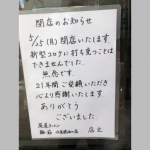 閉店のお知らせ
5/25(月)閉店いたします
新型コロナに打ち勝つことは
できませんでした。
無念です。
21年間ご愛顧いただき
心より感謝いたします
ありがとう
ございました。
店主